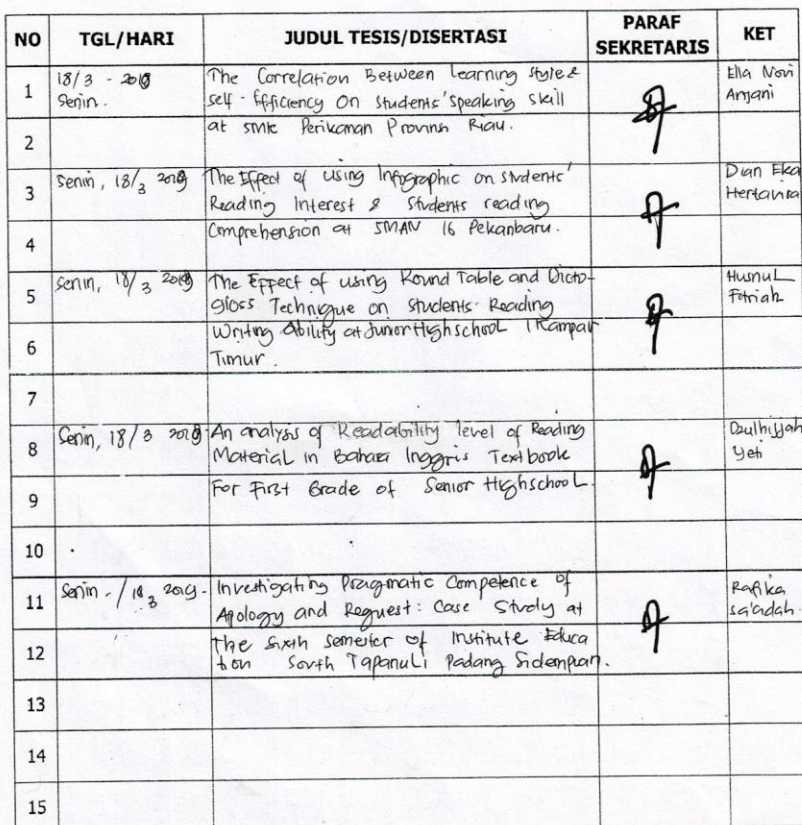 NO TGL/HARI JUDUL TESIS/DISERTASI PARAF SEKRETARIS KET
1 18/3 - 2019 The Correlation Between Learning Style & Ella Novi
Senin. self-Efficiency On students' speaking skill Anjani
2 at smk Perikanan Provinsi Riau.
3 Senin, 18/3 2019 The Effect of using Infographic on students' Dian Eka
Reading Interest & Students reading Hertavira
4 Comprehension at SMAN 16 Pekanbaru.
5 Senin, 18/3 2019 The Effect of using Round Table and Dicto- Husnul
gloss Technique on students Reading Fitriah
6 Writing Ability at Junior High school 1 Kampar
Timur.
7
8 Senin, 18/3 2019 An analysis of Readability level of Reading Dzulhijjah
Material in Bahasa Inggris Textbook Yeti
9 For First Grade of Senior Highschool.
10
11 Senin - /18 3 2019 - Investigating Pragmatic Competence of Rafika
Apology and Request: Case Study at sa'adah.
12 the sixth semester of Institute Educa
tion South Tapanuli Padang Sidempuan.
13
14
15